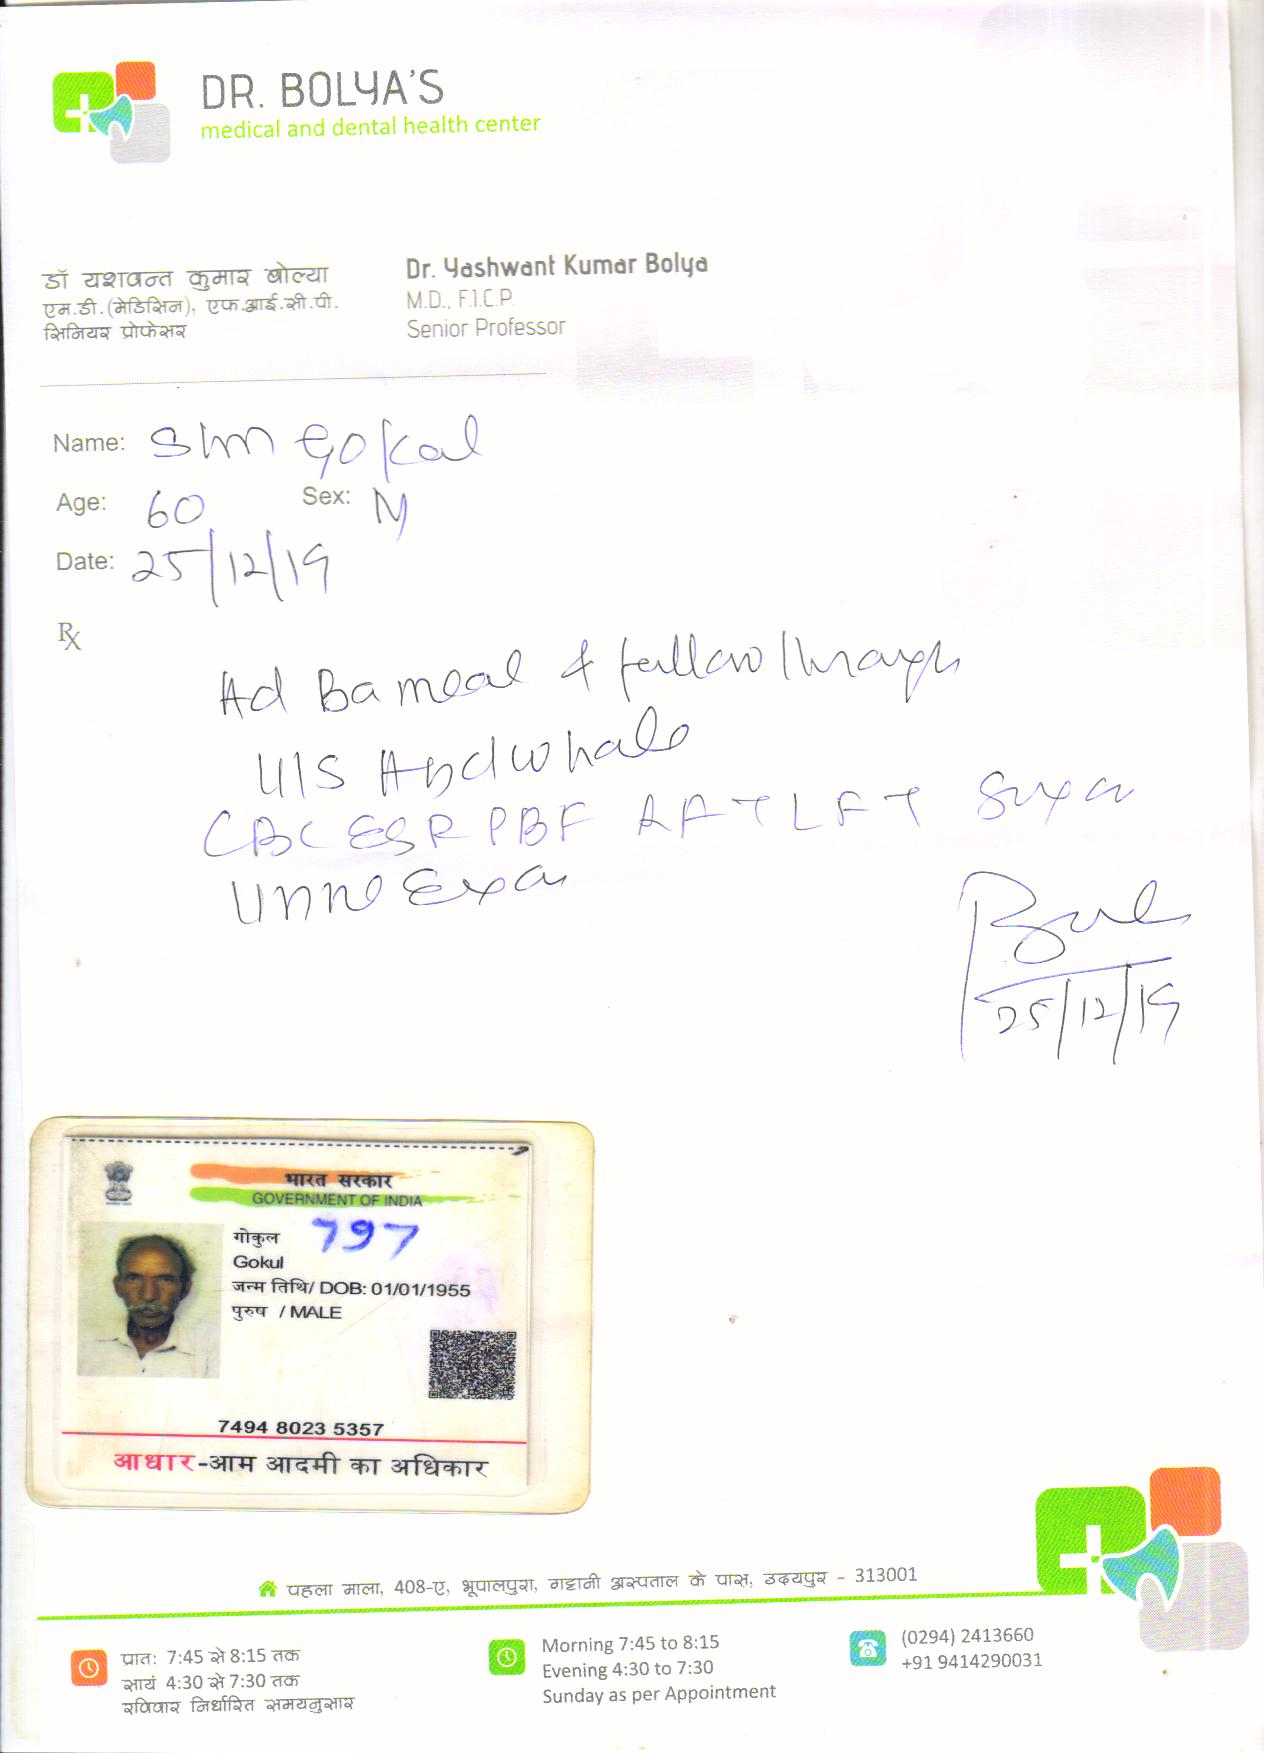 DR. BOLYA'S
medical and dental health center
डॉ यशवन्त कुमार बोल्या
एम.डी.(मेडिसिन), एफ.आई.सी.पी.
सिनियर प्रोफेसर
Dr. Yashwant Kumar Bolya
M.D., F.I.C.P.
Senior Professor
Name: Shri Gokal
Age: 60 Sex: M
Date: 25/12/19
Rx
Ad Ba meal & follow through
U/S Abd whole
CBC ESR PBF RFT LFT
Urine Exa
25/12/19
भारत सरकार
GOVERNMENT OF INDIA
797
गोकुल
Gokul
जन्म तिथि/ DOB: 01/01/1955
पुरुष / MALE
7494 8023 5357
आधार-आम आदमी का अधिकार
पहला माला, 408-ए, भूपालपुरा, गट्टानी अस्पताल के पास, उदयपुर - 313001
प्रात: 7:45 से 8:15 तक
सायं 4:30 से 7:30 तक
रविवार निर्धारित समयनुसार
Morning 7:45 to 8:15
Evening 4:30 to 7:30
Sunday as per Appointment
(0294) 2413660
+91 9414290031